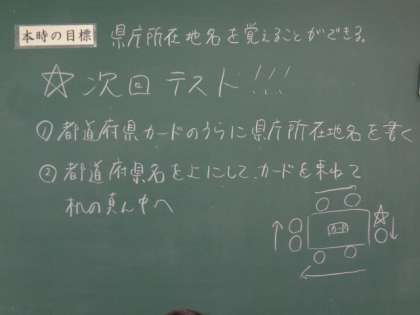 本時の目標 県庁所在地名を覚えることができる。
☆次回テスト!!!
①都道府県カードのうらに県庁所在地名を書く
②都道府県名を上にして、カードを束ねて
机の真ん中へ